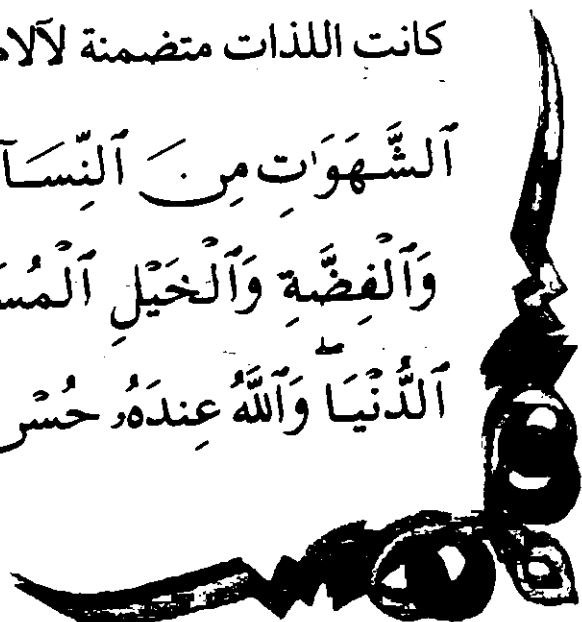 كانت اللذات متضمنة لآلام
ٱلشَّهَوَٰتِ مِنَ ٱلنِّسَآ
وَٱلْفِضَّةِ وَٱلْخَيْلِ ٱلْمُسَ
ٱلدُّنْيَا ۖ وَٱللَّهُ عِندَهُۥ حُسْن